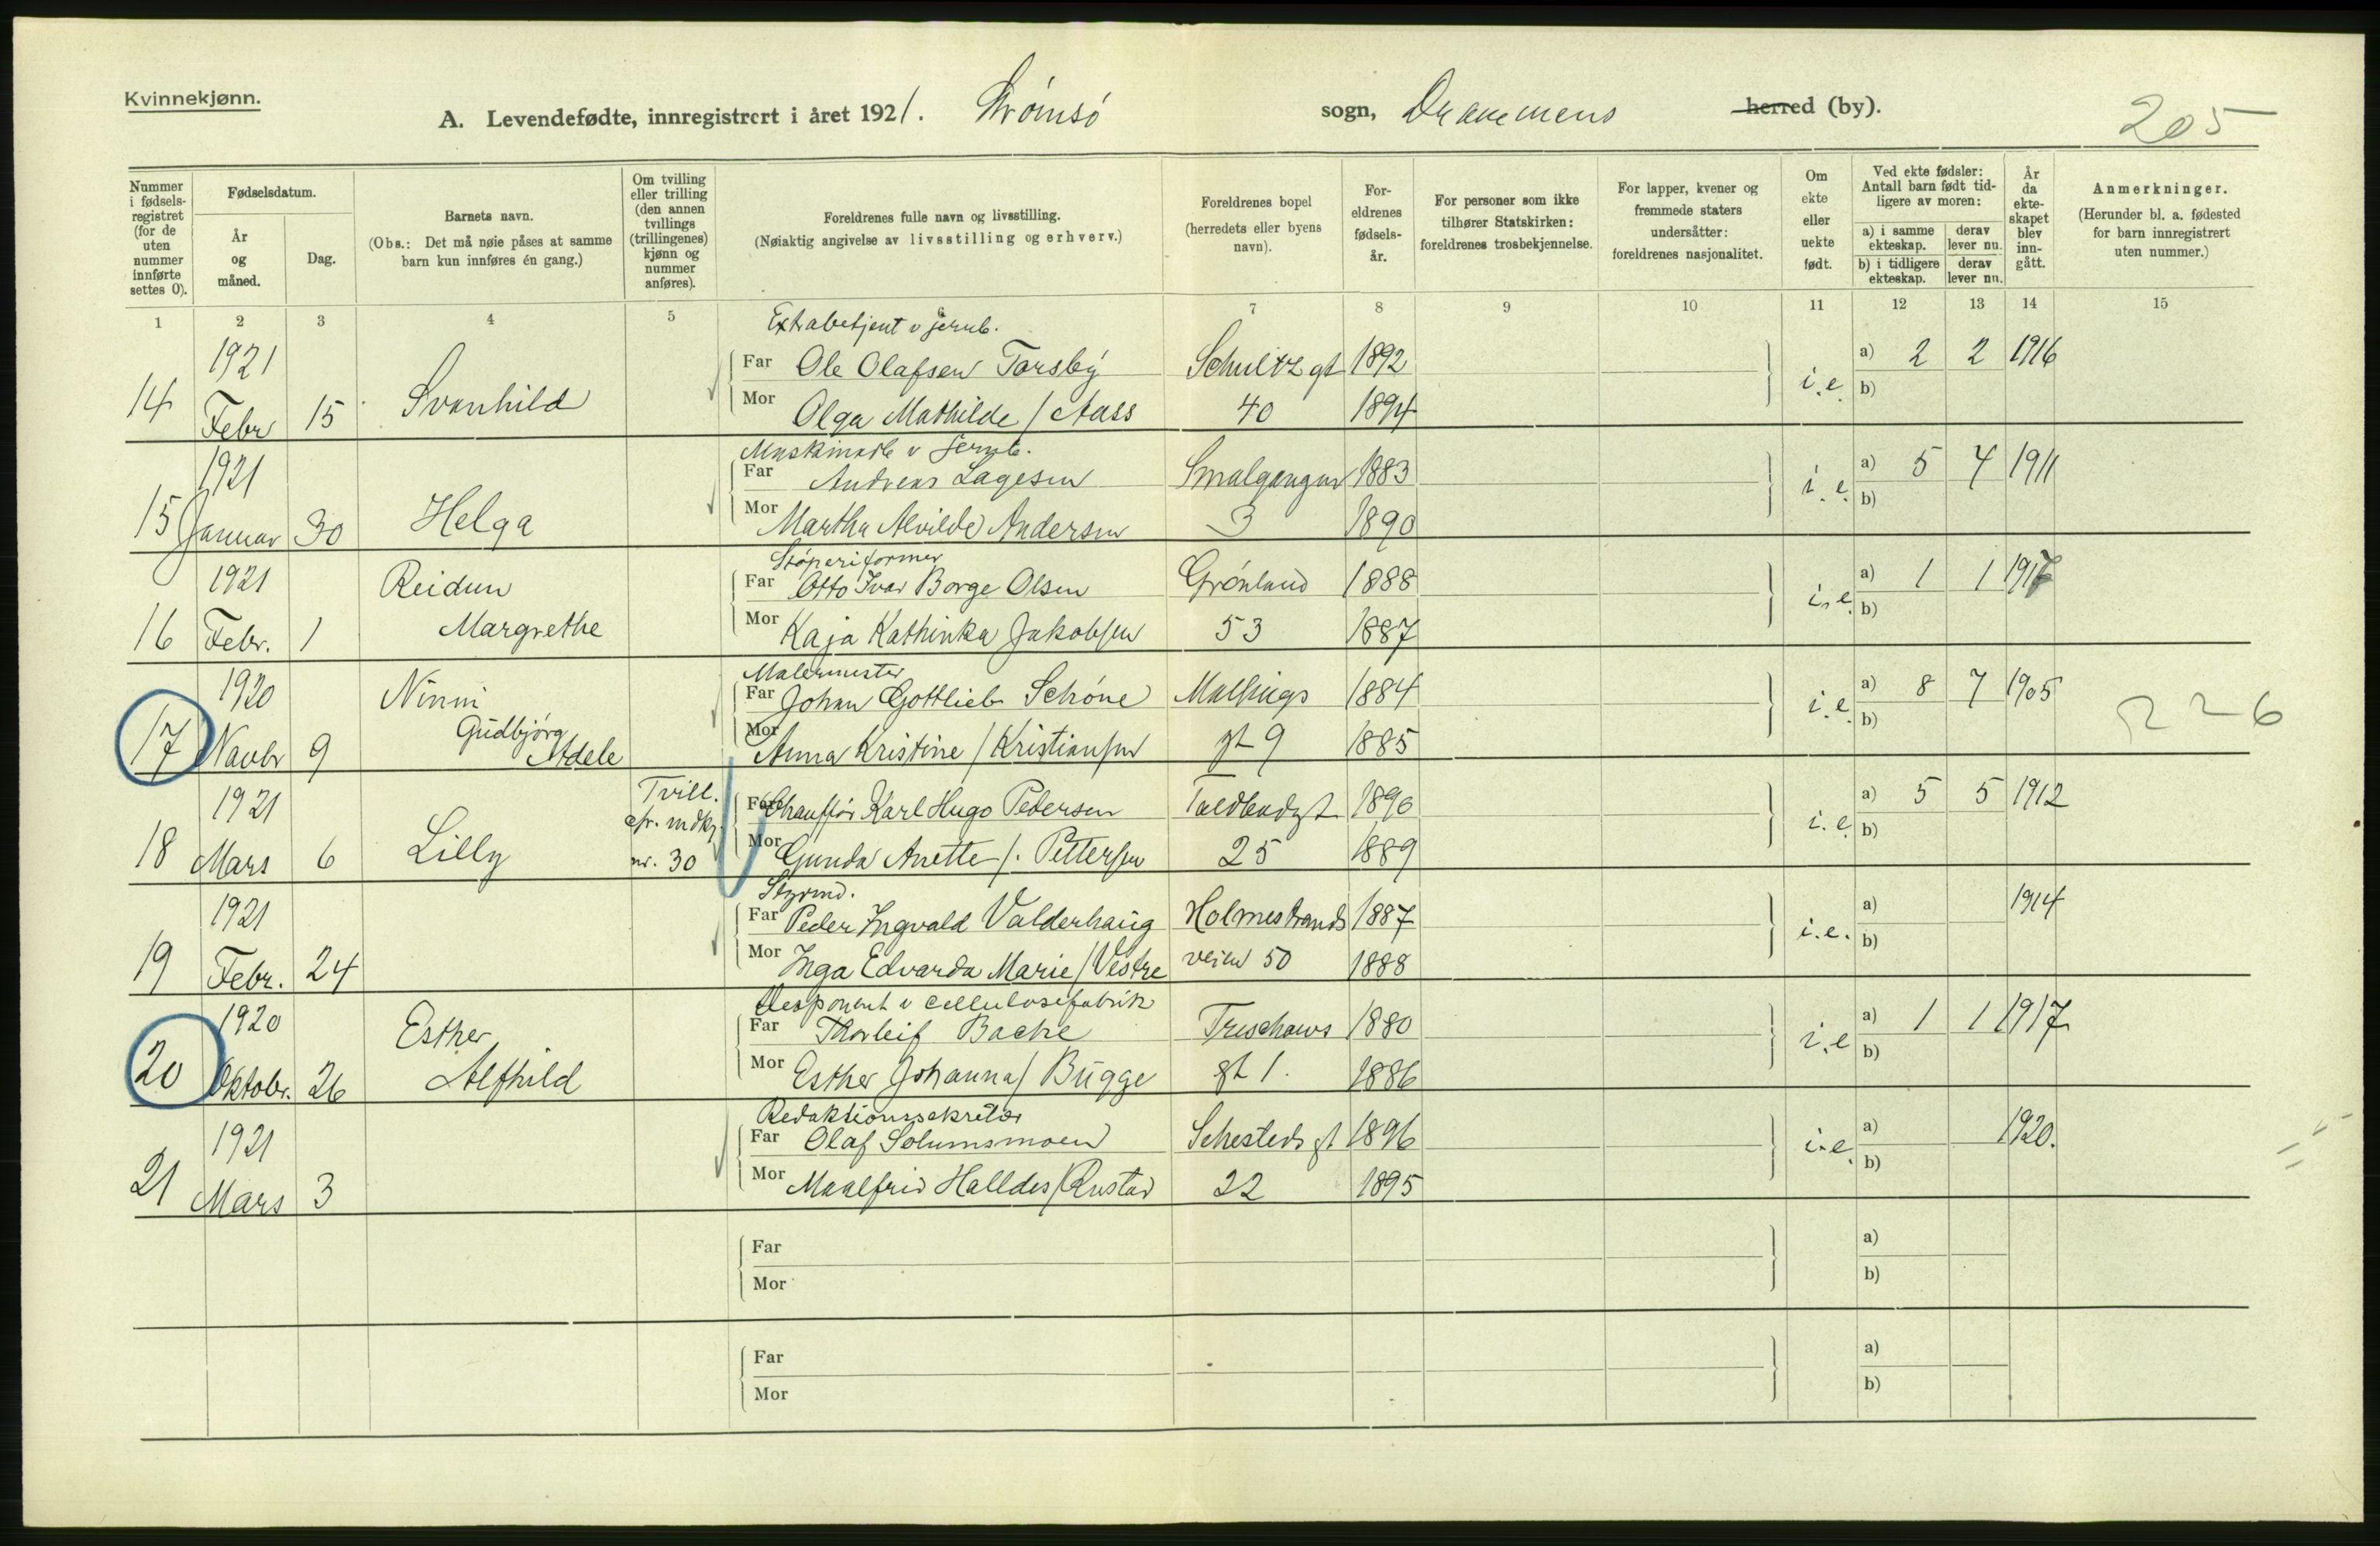 Kvinnekjønn.
A. Levendefødte, innregistrert i året 1921. Strømsö sogn, Drammens herred (by).
205
Nummer i fødselsregistret (for de uten nummer innførte settes 0).
Fødselsdatum.
År og måned.
Dag.
Barnets navn.
(Obs.: Det må nøie påses at samme barn kun innføres én gang.)
Om tvilling eller trilling (den annen tvillings (trillingenes) kjønn og nummer anføres).
Foreldrenes fulle navn og livsstilling.
(Nøiaktig angivelse av livsstilling og erhverv.)
Foreldrenes bopel (herredets eller byens navn).
Foreldrenes fødselsår.
For personer som ikke tilhører Statskirken: foreldrenes trosbekjennelse.
For lapper, kvener og fremmede staters undersåtter: foreldrenes nasjonalitet.
Om ekte eller uekte født.
Ved ekte fødsler: Antall barn født tidligere av moren:
a) i samme ekteskap. derav lever nu.
b) i tidligere ekteskap. derav lever nu.
År da ekteskapet blev inngått.
Anmerkninger.
(Herunder bl. a. fødested for barn innregistrert uten nummer.)
1 2 3 4 5 7 8 9 10 11 12 13 14 15
Extrabetjent v jernb.
1921 Far Ole Olafsen Torsby Schultz gt 1892 a) 2 2 1916
14 Febr 15 Svanhild Mor Olga Mathilde / Aass 40 1894 i.e. b)
v Jernb.
1921 Far Andreas Lagesen Smalgangen 1883 a) 5 4 1911
15 Januar 30 Helga Mor Martha Alvilde Andersen 3 1890 i.e. b)
Støperiformer
1921 Reidun Far Otto Ivar Borge Olsen Grönland 1888 a) 1 1
16 Febr. 1 Margrethe Mor Kaja Kathinka Jakobsen 53 1887 i.e. b)
Malermester
1920 Ninni Far Johan Gottlieb Schöne Mallings 1884 a) 8 7 1905
17 Novbr 9 Gudbjørg Adele Mor Anna Kristine / Kristiansen gt 9 1885 i.e. b) 226
1921 Tvill. Far Chauffør Karl Hugo Petersen Toldbodgt 1890 a) 5 5 1912
18 Mars 6 Lilly cfr. mdkj. nr. 30 Mor Gunda Anette /. Pettersen 25 1889 i.e. b)
Styrmd.
1921 Far Peder Ingvald Valderhaug Holmestrands 1887 a) 1914
19 Febr. 24 Mor Inga Edvarda Marie / Vestre veien 50 1888 i.e. b)
Disponent v cellulosefabrik
1920 Esther Far Thorleif Bache Treschows 1880 a) 1 1 1917
20 Oktobr. 26 Alfhild Mor Esther Johanna / Bugge gt 1. 1886 i.e b)
Redaktionssekretær
1921 Far Olaf Solumsmoen Schesteds gt 1896 a) 1920.
21 Mars 3 Mor Maalfrid Halldes / Rustad 22 1895 i.e. b)
Far a)
Mor b)
Far a)
Mor b)